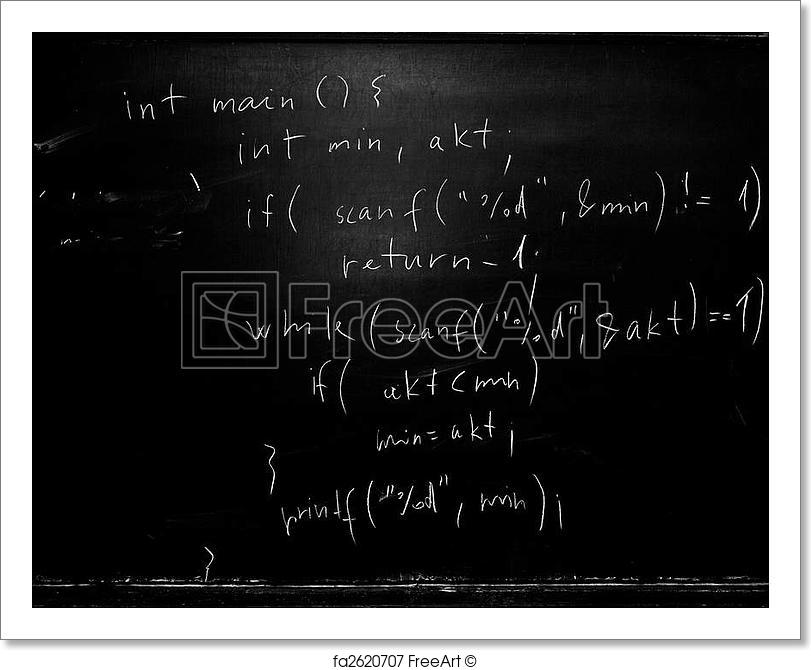 int main () {
int min, akt;
if( scanf("%d", &min) != 1)
return -1;
while (scanf("%d", &akt) == 1)
if( akt < min)
min = akt;
}
printf("%d", min);
}
FreeArt
fa2620707 FreeArt ©